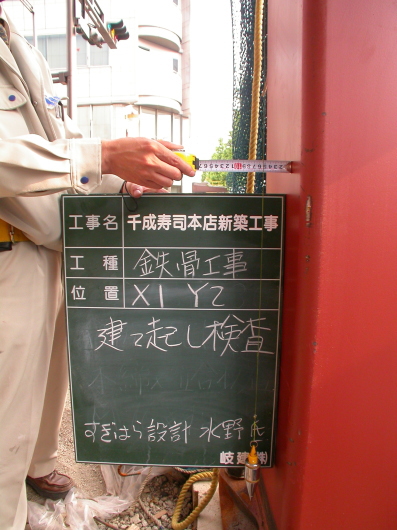 工事名 千成寿司本店新築工事
工種 鉄骨工事
位置 X1 Y2
建て起し検査
すぎはら設計 水野氏
岐建㈱